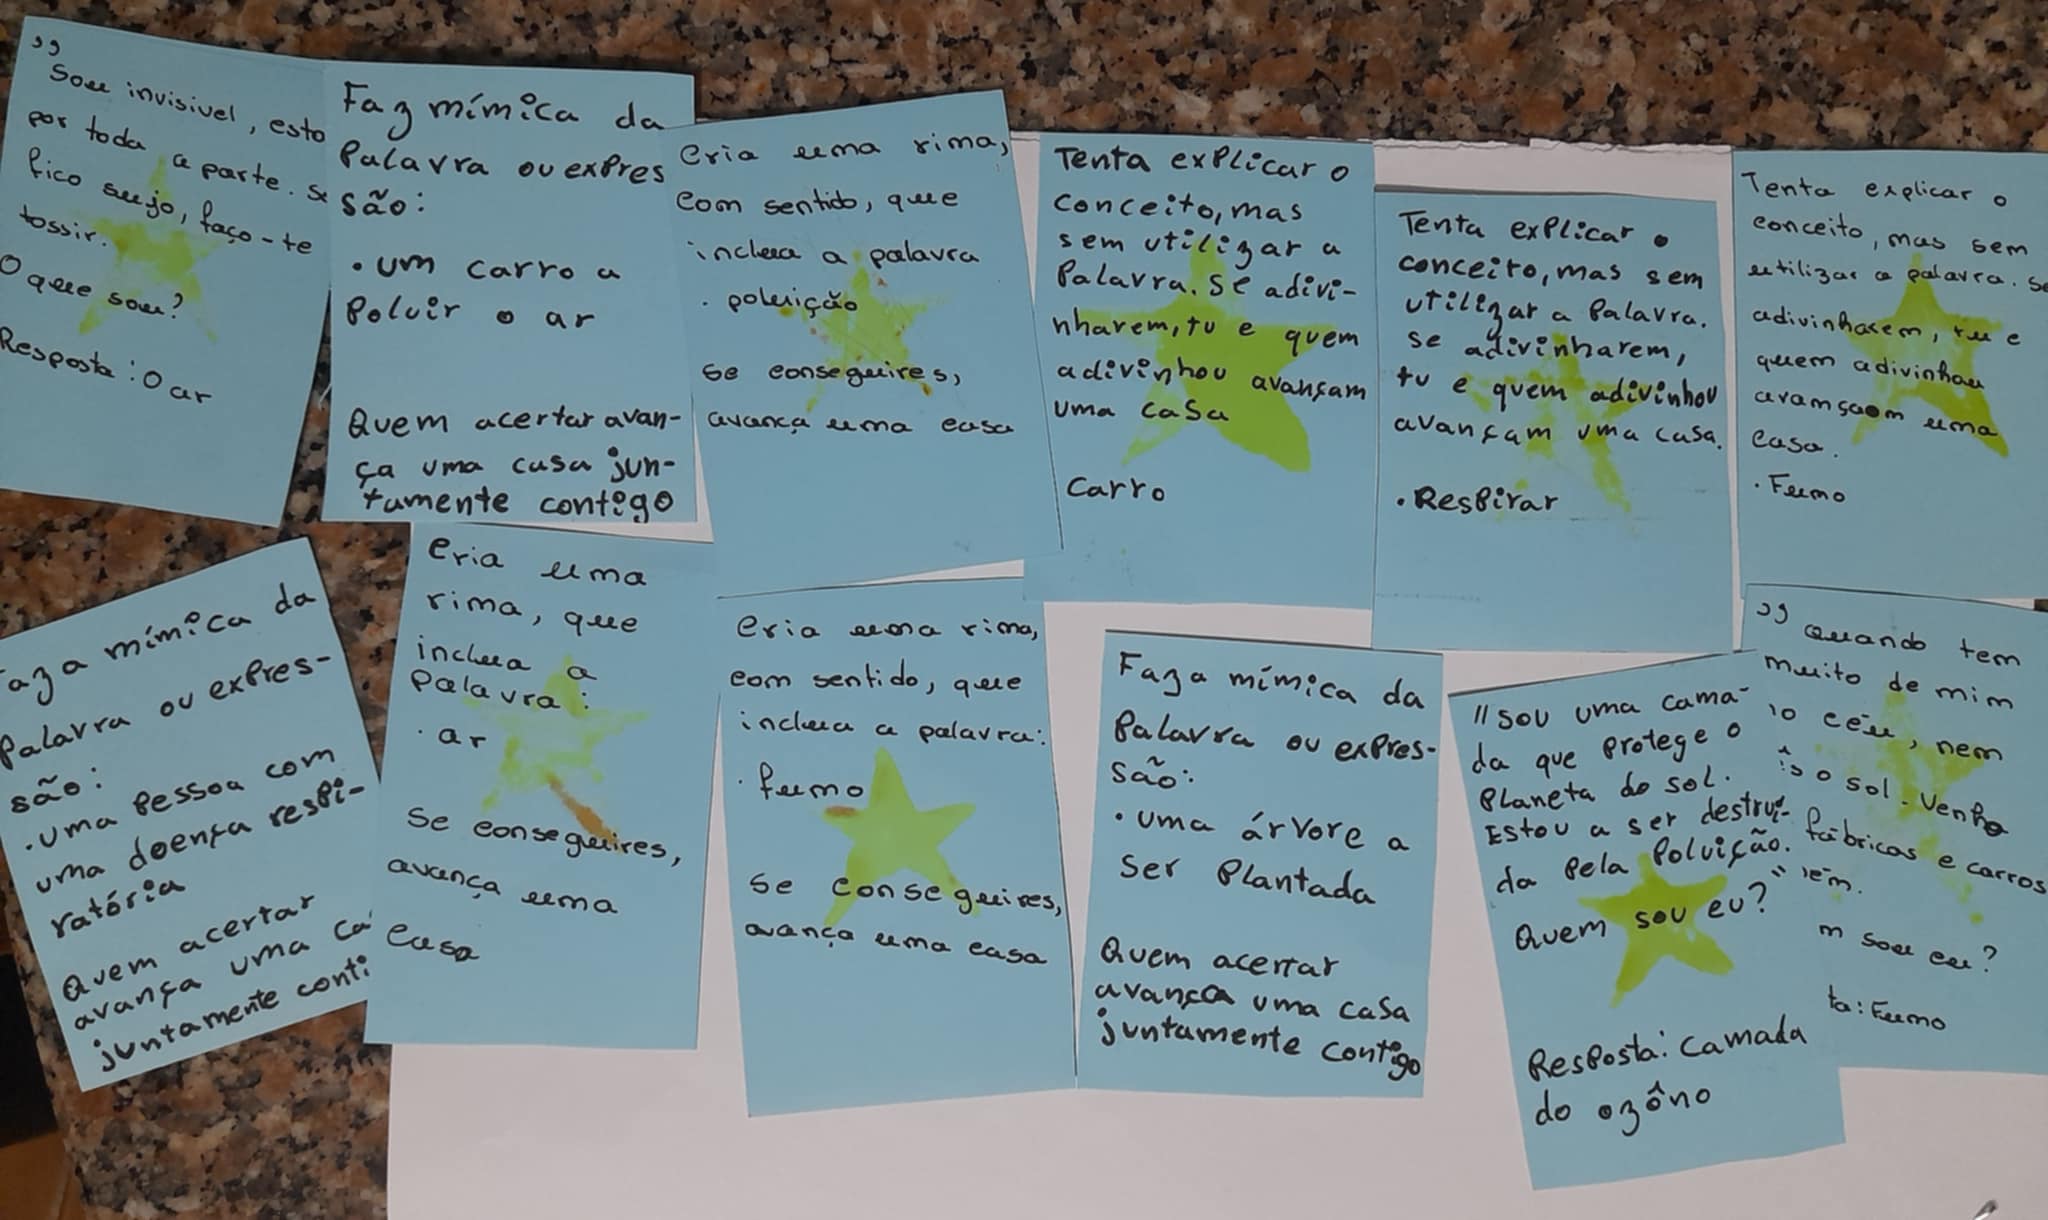 ,,
Sou invisivel, esto
por toda a parte. Se
fico sujo, faço-te
tossir.
O que sou?
Resposta: O ar
Faz mímica da
Palavra ou expres
são:
. um carro a
Poluir o ar
Quem acertar avan-
ça uma casa jun-
tamente contigo
Cria uma rima,
com sentido, que
inclua a palavra
. poluição
Se conseguires,
avança uma casa
Tenta explicar o
conceito, mas
sem utilizar a
Palavra. Se adivi-
nharem, tu e quem
adivinhou avançam
uma casa
Carro
Tenta explicar o
conceito, mas sem
utilizar a Palavra.
se adivinharem,
tu e quem adivinhou
avançam uma casa.
. Respirar
Tenta explicar o
conceito, mas sem
utilizar a palavra. Se
adivinharem, tu e
quem adivinhou
avançaom uma
casa.
. Fumo
aza mímica da
Palavra ou expres-
são:
. uma Pessoa com
uma doença respi-
ratória
Quem acertar
avança uma ca
juntamente conti
Cria uma
rima, que
inclua a
palavra:
. ar
Se conseguires,
avança uma
casa
Cria uma rima,
com sentido, que
inclua a palavra:
. fumo
Se conseguires,
avança uma casa
Faza mímica da
Palavra ou expres-
são:
. uma árvore a
ser Plantada
Quem acertar
avança uma casa
juntamente contigo
"Sou uma cama-
da que protege o
Planeta do sol.
Estou a ser destruí-
da pela Poluição."
Quem sou eu?
Resposta: Camada
do ozôno
,, Quando tem
muito de mim
no céu, nem
is o sol. Venho
fábricas e carros
ém.
m sou eu?
ta: Fumo